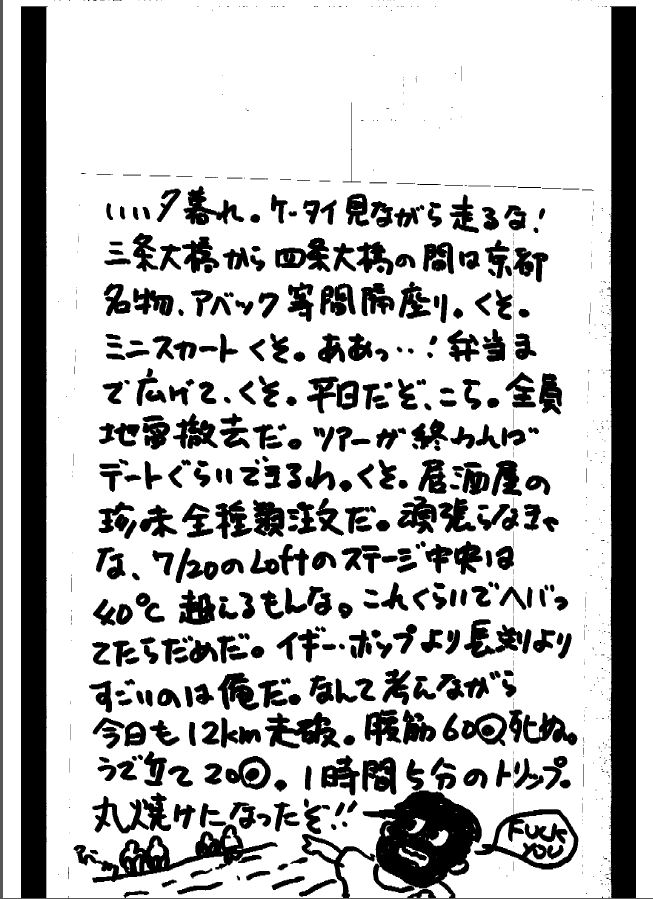 いい夕暮れ。ケータイ見ながら走るな!
三条大橋から四条大橋の間は京都
名物、アベック等間隔座り。くそ。
ミニスカートくそ。ああっ‥!弁当ま
で広げて、くそ。平日だぞ、こら。全員
地雷撤去だ。ツアーが終わんば
デートぐらいできるわ。くそ。居酒屋の
珍味全種類注文だ。頑張らなきゃ
な、7/20のLoftのステージ中央は
40℃超えるもんな。これくらいでヘバっ
てたらだめだ。イギー・ポップより長渕より
すごいのは俺だ。なんて考えながら
今日も12km走破。腹筋60回、死ぬ。
うで立て20回。1時間5分のトリップ。
丸焼けになったぞ!!
FUCK
YOU